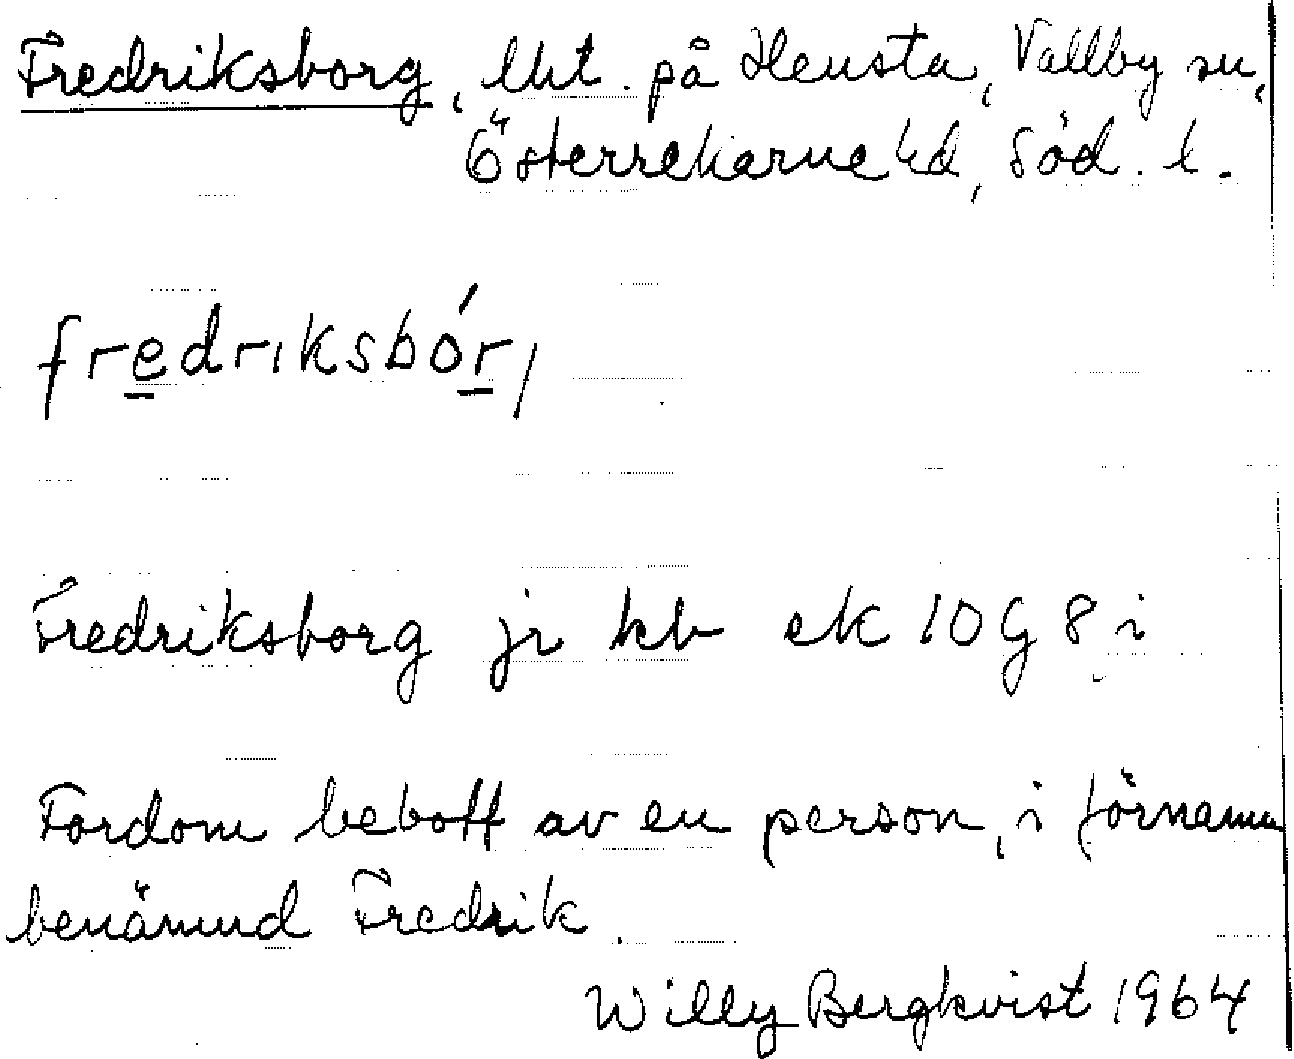 Fredriksborg, lht. på Hensta, Vallby sn,
Österrekarne hd, Söd. l.
fredriksbór,
Fredriksborg jr kb ek 10G8i
Fordom bebott av en person, i förnamn
benämnd Fredrik.
Willy Bergkvist 1964